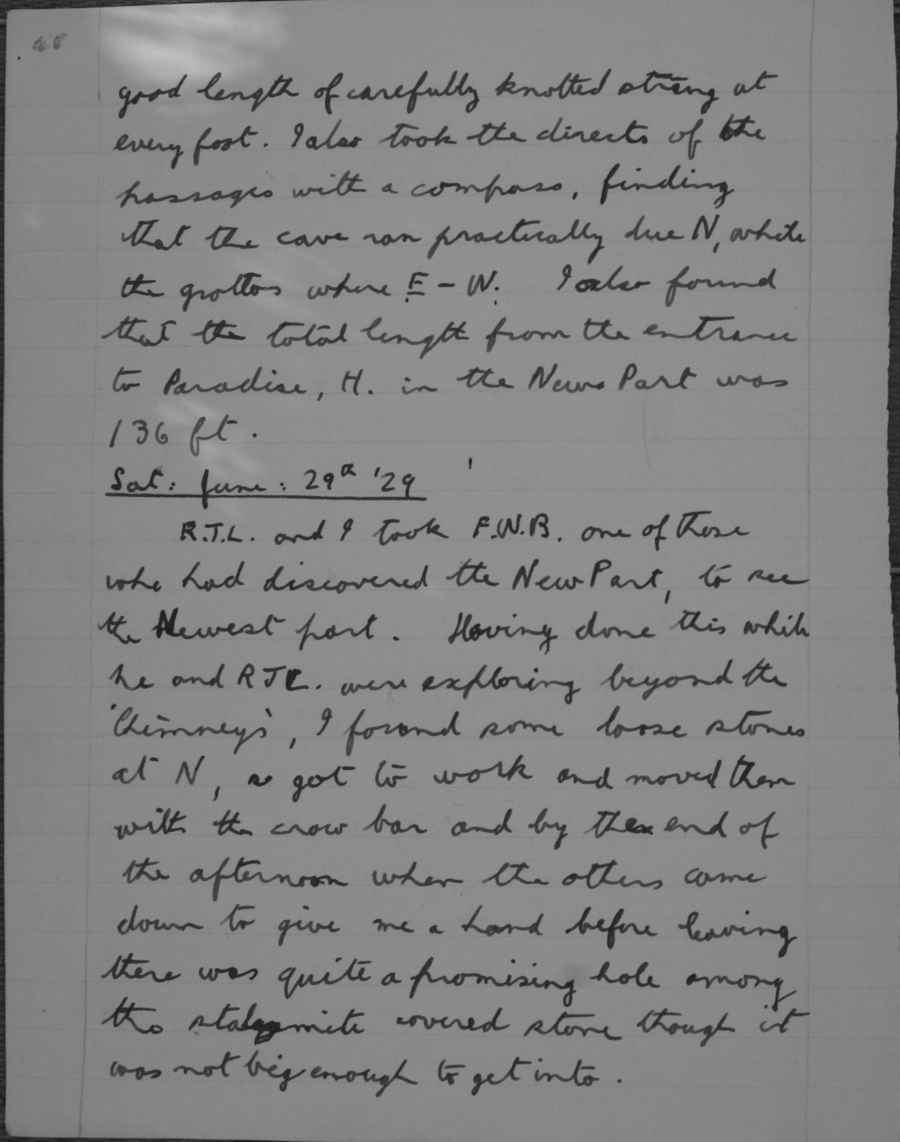 good length of carefully knotted string at
every foot. I also took the directs of the
passages with a compass, finding
that the cave ran practically due N, while
the grottos where E - W. I also found
that the total length from the entrance
to Paradise, H. in the News Part was
136 ft.
Sat: June: 29th '29
R.T.L. and I took F.W.B. one of those
who had discovered the New Part, to see
the Newest part. Having done this while
he and RTL. were exploring beyond the
'Chimneys', I found some loose stones
at N, so got to work and moved them
with the crow bar and by the end of
the afternoon when the others came
down to give me a hand before leaving
there was quite a promising hole among
the stalagmite covered stone though it
was not big enough to get into.